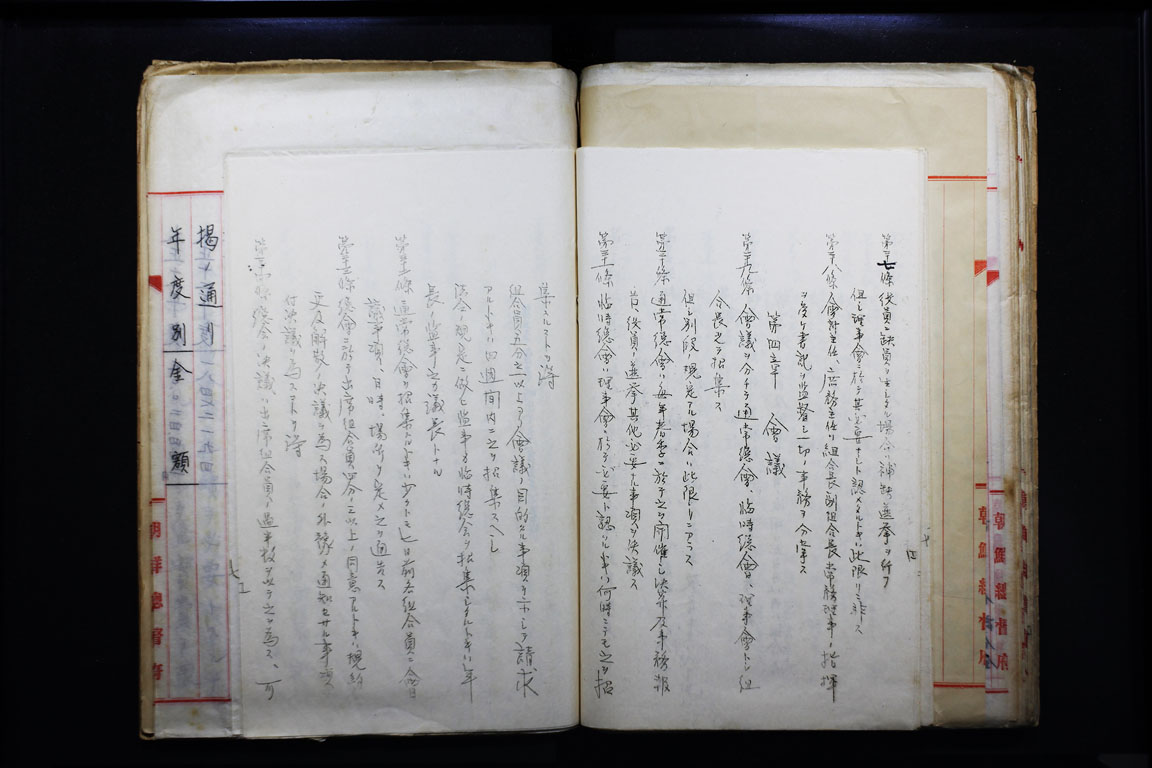 第二十七條 役員ニ缺員ヲ生シタル場合ハ補缺選挙ヲ行フ
但シ理事會ニ於テ其必要ナシト認メタルトキハ此限リニ非ス
第二十八條 會計主任、庶務主任ハ組合長副組合長常務理事ノ指揮
ヲ受ケ書記ヲ監督シ一切ノ事務ヲ分掌ス
第四章 會議
第二十九條 會議ヲ分チテ通常總會、臨時總會、理事會トシ組
合長之ヲ招集ス
但シ別段ノ規定アル場合ハ此限リニアラス
第三十條 通常總會ハ毎年春季ニ於テ之ヲ開催シ決算及事務報
告、役員ノ選挙其他必要ナル事項ヲ決議ス
第三十一條 臨時總會ハ理事會ニ於テ必要ト認メタル時ハ何時ニテモ之ヲ招
集スルコトヲ得
組合員五分之一以上ヨリ會議ノ目的タル事項ヲ示シテ請求
アルトキハ四週間內ニ之ヲ招集スヘシ
法令ノ規定ニ依リ監事ヨリ臨時總會ヲ招集シタルトキハ年
長ノ監事之カ議長トナル
第三十二條 通常總會ヲ招集スルトキハ少クトモ 日前各組合員ニ會日
議事事項、日時、場所ヲ定メ之ヲ通告ス
第三十三條 總會ニ於テ出席組合員四分ノ三以上ノ同意アルトキハ規約
変更解散ノ決議ヲ為ス場合ノ外豫メ通知セサル事項
ニ付決議ヲ為スコトヲ得
第三十四條 總會ノ決議ハ出席組合員ノ過半数ヲ以テ之ヲ為ス、可
揭ノ通リ
年度別金額
朝鮮總督府
朝鮮總督府
朝鮮總督府